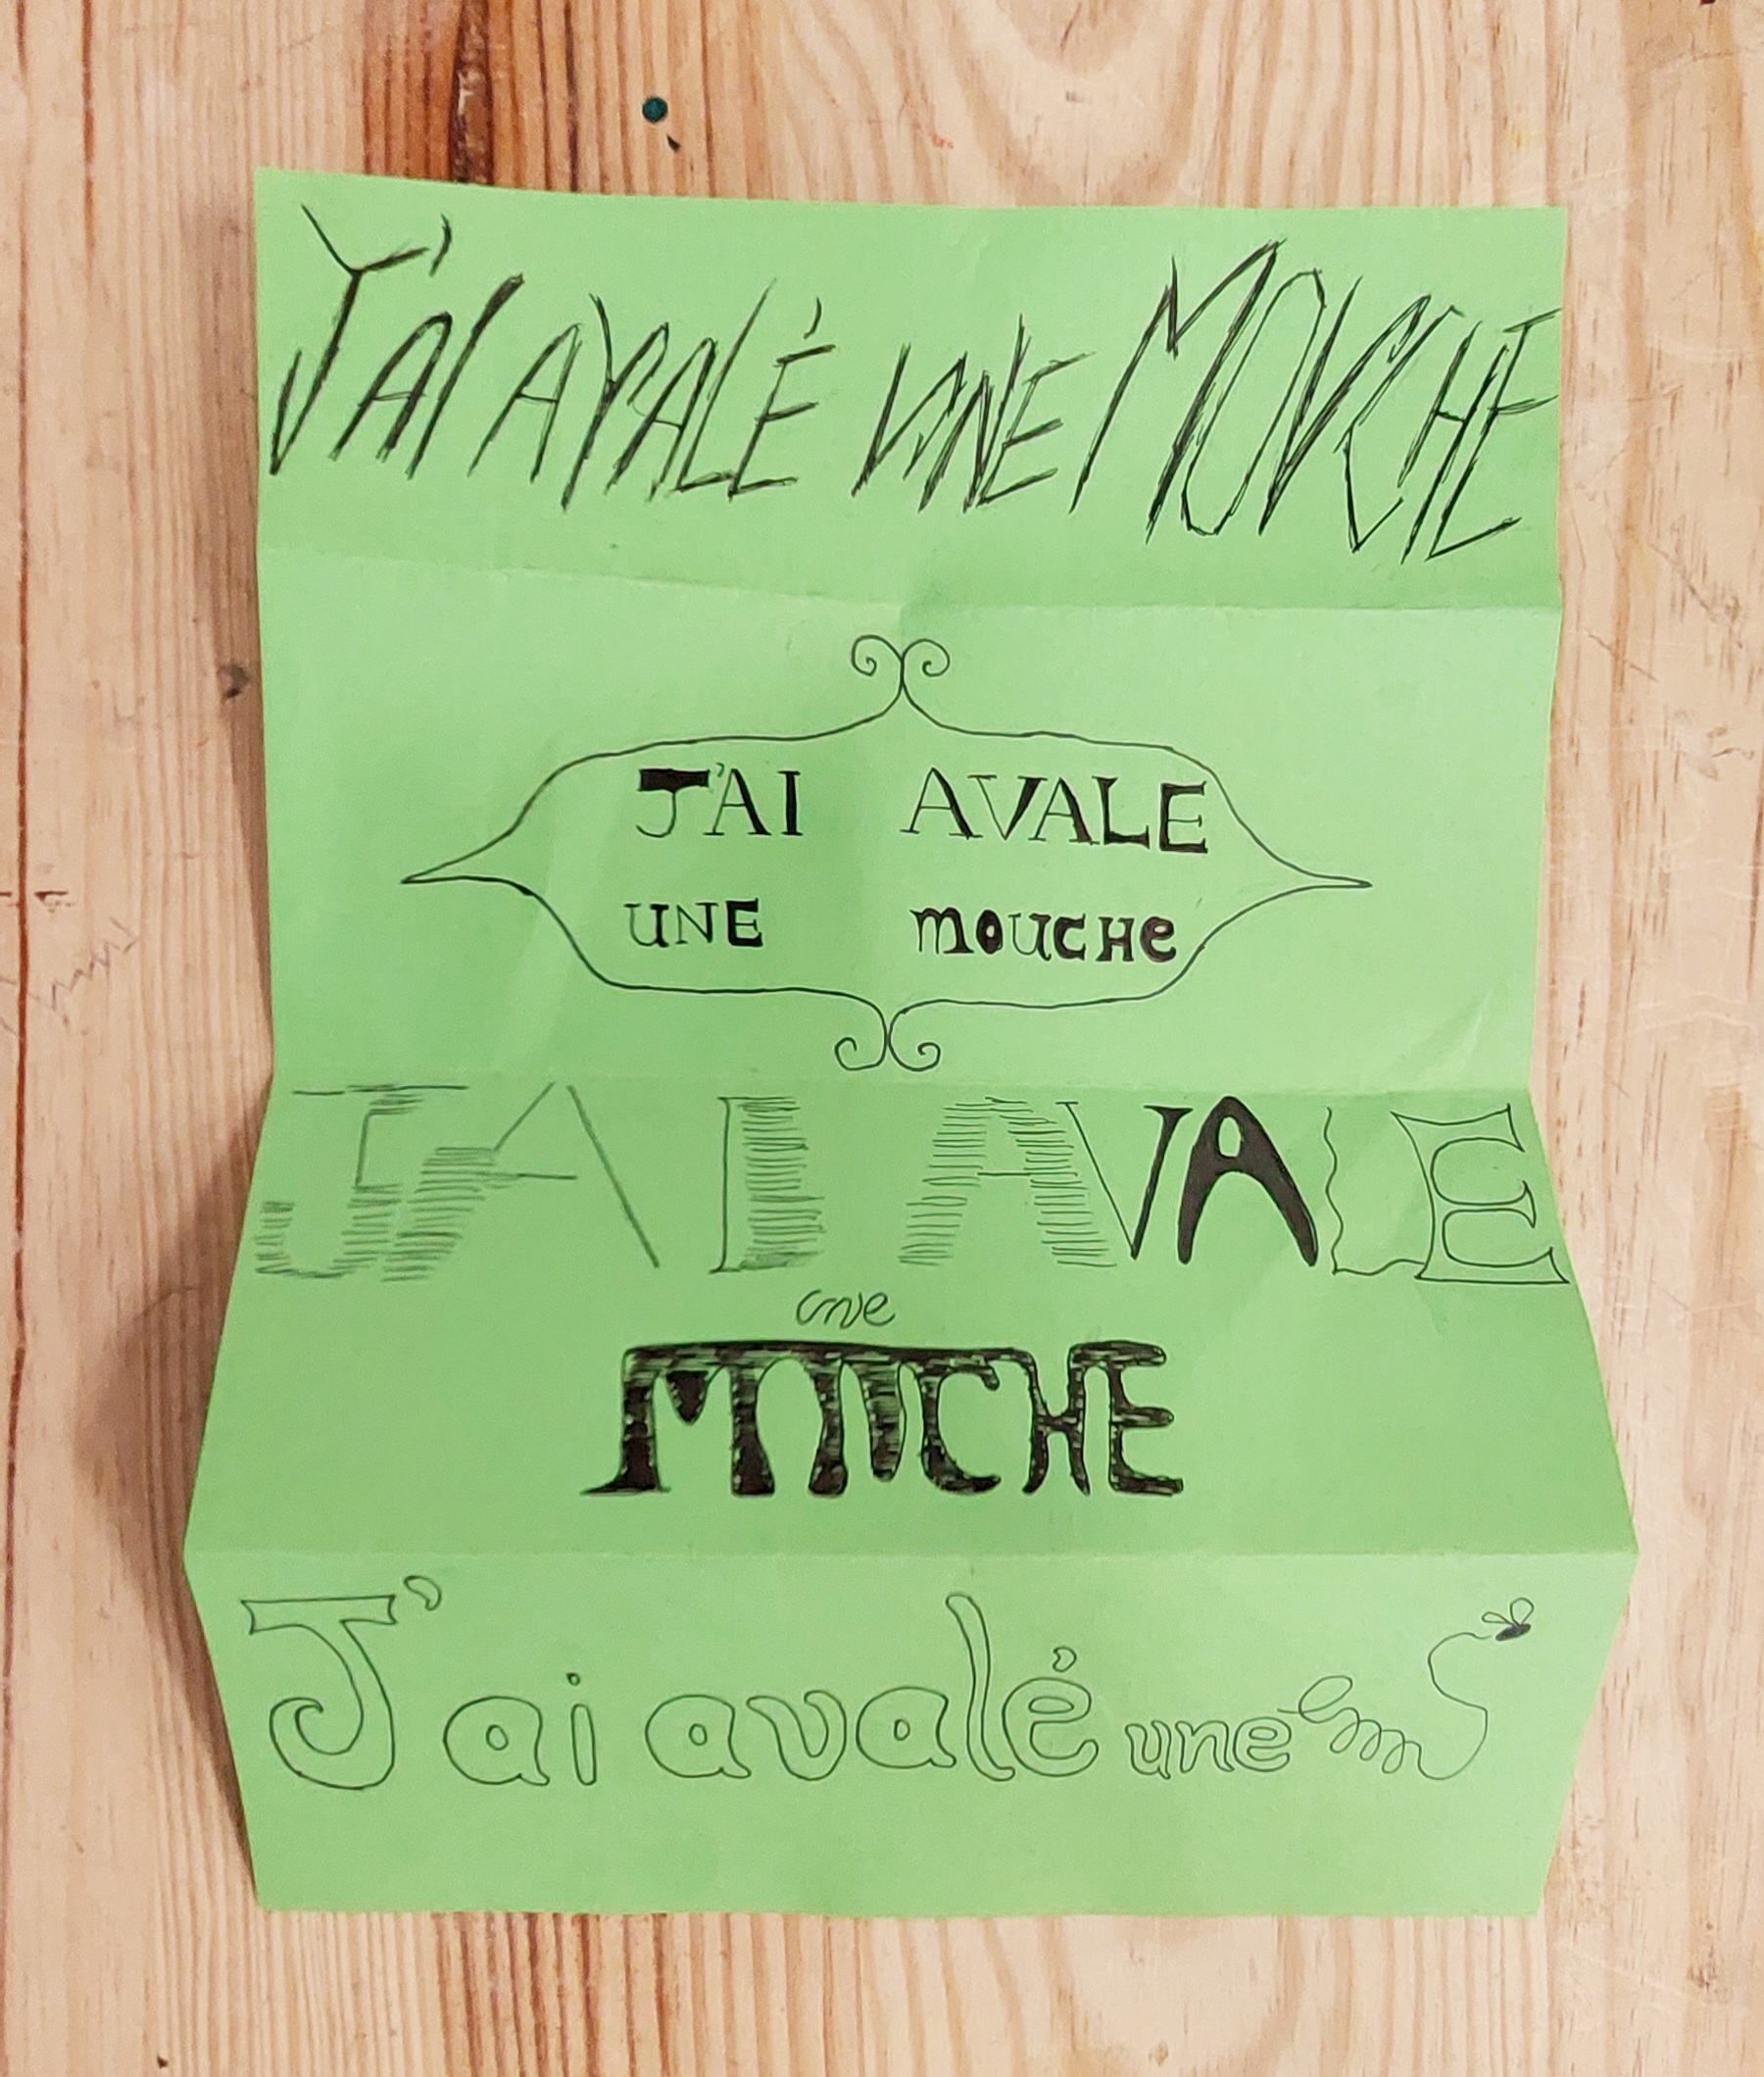 J'AI AVALÉ UNE MOUCHE
J'AI AVALE
UNE mouche
J'AI AVALE
une
MOUCHE
J'ai avalé une